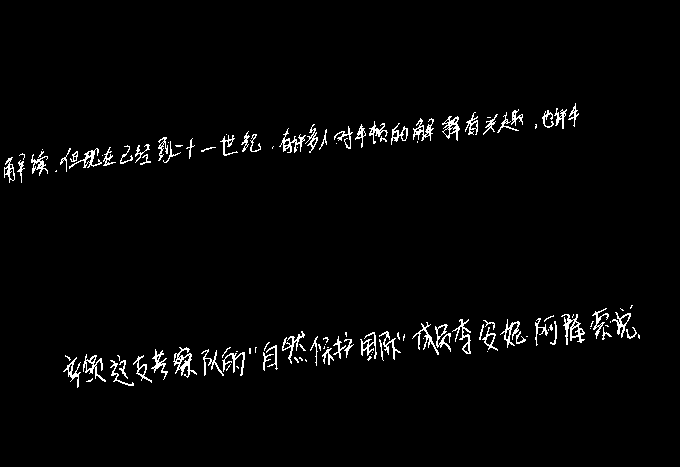 解读.但现在已经到二十一世纪.有许多人对牛顿的解释有关趣,也许牛
率领这支考察队的"自然保护国际"成员李安妮.阿隆索说、